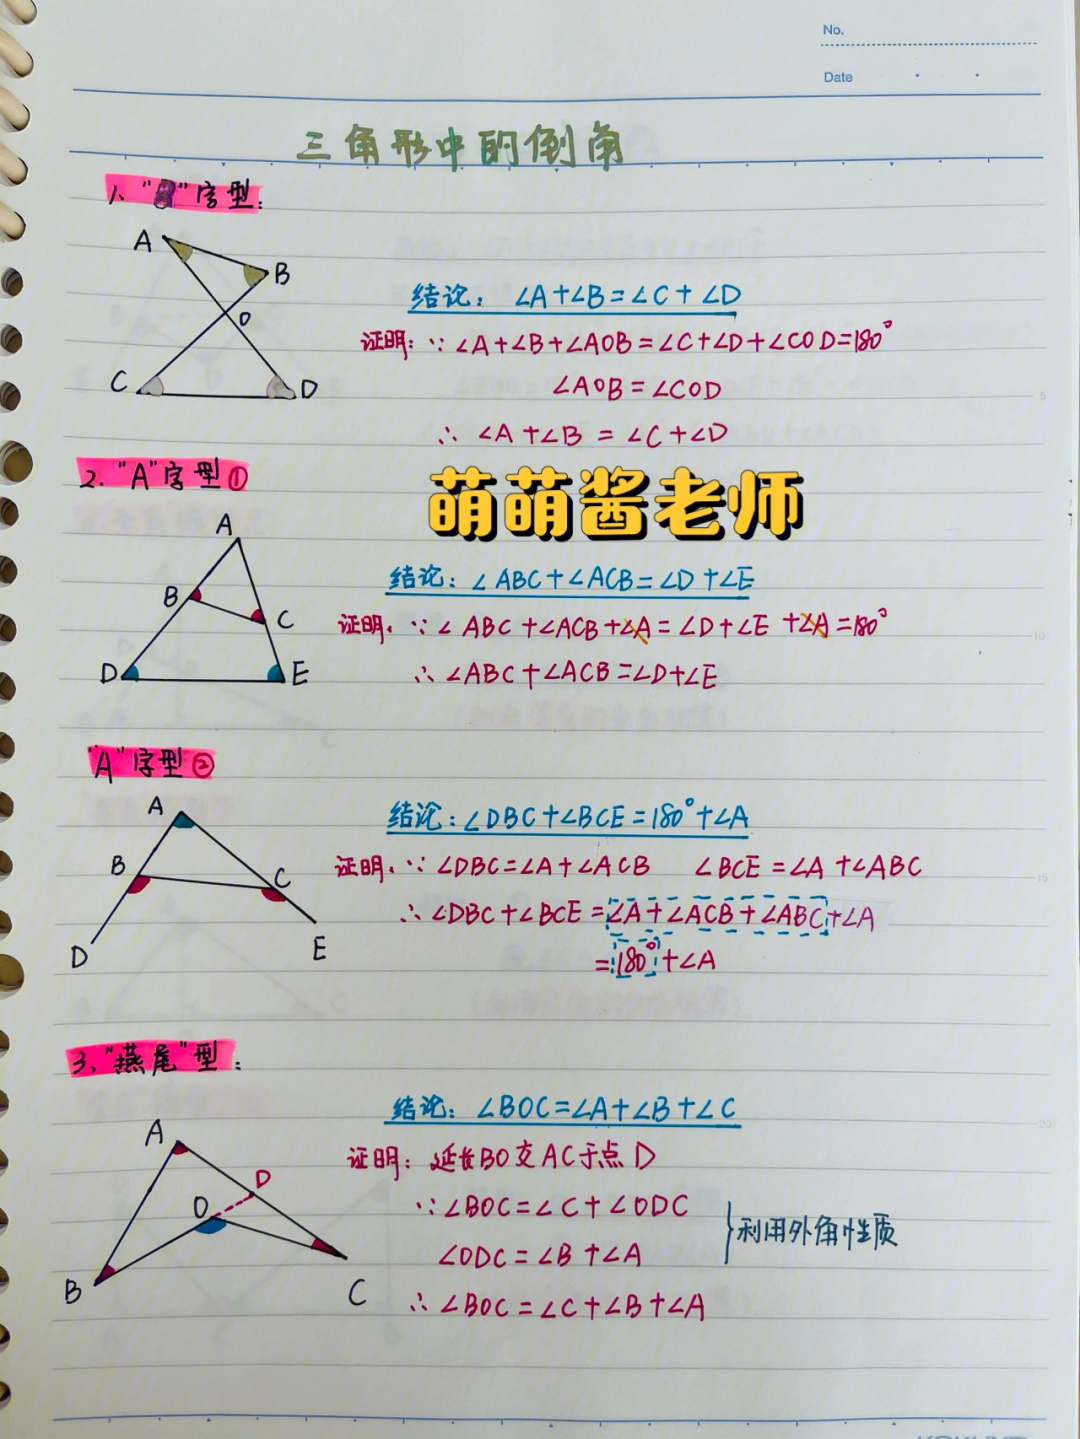 No.
Date
三角形中的倒角
1、"8"字型：
A
B
O
C
D
结论：∠A+∠B=∠C+∠D
证明：∵∠A+∠B+∠AOB=∠C+∠D+∠COD=180°
∠AOB=∠COD
∴ ∠A+∠B = ∠C+∠D
2、"A"字型①
萌萌酱老师
A
B
C
D
E
结论：∠ABC+∠ACB=∠D+∠E
证明：∵∠ABC+∠ACB+∠A=∠D+∠E+∠A=180°
∴∠ABC+∠ACB=∠D+∠E
"A"字型②
A
B
C
D
E
结论：∠DBC+∠BCE=180°+∠A
证明：∵∠DBC=∠A+∠ACB ∠BCE=∠A+∠ABC
∴∠DBC+∠BCE=∠A+∠ACB+∠ABC+∠A
=180°+∠A
3、"燕尾"型：
A
D
O
B
C
结论：∠BOC=∠A+∠B+∠C
证明：延长BO交AC于点D
∵∠BOC=∠C+∠ODC
∠ODC=∠B+∠A
利用外角性质
∴∠BOC=∠C+∠B+∠A
5
10
15
20